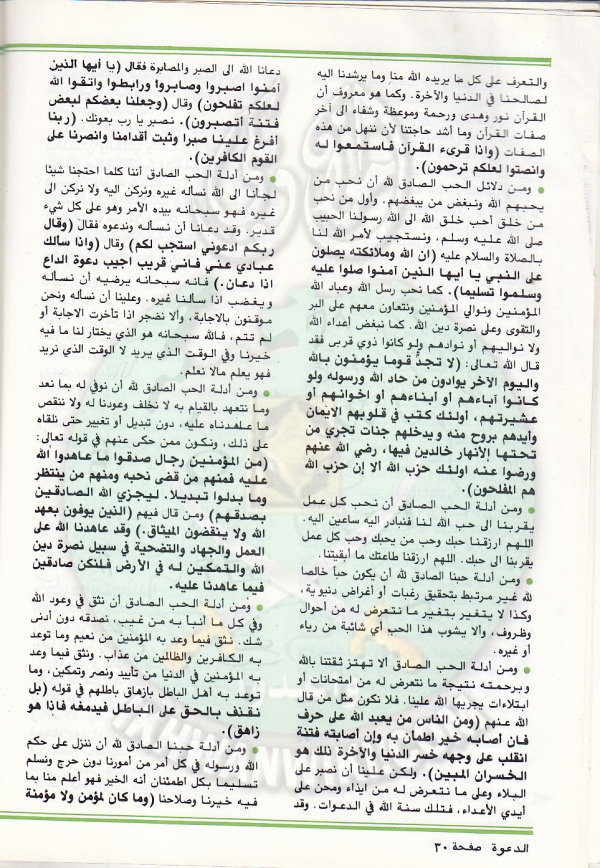 والتعرف على كل ما يريده الله منا وما يرشدنا اليه
لصالحنا في الدنيا والآخرة. وكما هو معروف أن
القرآن نور وهدى ورحمة وموعظة وشفاء الى آخر
صفات القرآن وما أشد حاجتنا لأن ننهل من هذه
الصفات (واذا قرىء القرآن فاستمعوا له
وانصتوا لعلكم ترحمون).
• ومن دلائل الحب الصادق لله أن نحب من
يحبهم الله ونبغض من يبغضهم. وأول من نحب
من خلق أحب خلق الله الى الله رسولنا الحبيب
صلى الله عليه وسلم، ونستجيب لأمر الله لنا
بالصلاة والسلام عليه (ان الله وملائكته يصلون
على النبي يا أيها الذين آمنوا صلوا عليه
وسلموا تسليما). كما نحب رسل الله وعباد الله
المؤمنين ونوالي المؤمنين ونتعاون معهم على البر
والتقوى وعلى نصرة دين الله. كما نبغض أعداء الله
ولا نواليهم أو نوادهم ولو كانوا ذوي قربى فقد
قال الله تعالى: (لا تجد قوما يؤمنون بالله
واليوم الآخر يوادون من حاد الله ورسوله ولو
كانوا آباءهم أو أبناءهم أو اخوانهم أو
عشيرتهم، أولئك كتب في قلوبهم الايمان
وأيدهم بروح منه ويدخلهم جنات تجري من
تحتها الأنهار خالدين فيها، رضي الله عنهم
ورضوا عنه اولئك حزب الله ألا إن حزب الله
هم المفلحون).
• ومن أدلة الحب الصادق أن نحب كل عمل
يقربنا الى حب الله لنا فنبادر اليه ساعين اليه.
اللهم ارزقنا حبك وحب من يحبك وحب كل عمل
يقربنا الى حبك. اللهم ارزقنا طاعتك ما أبقيتنا.
• ومن أدلة حبنا الصادق لله أن يكون حباً خالصا
لله غير مرتبط بتحقيق رغبات أو أغراض دنيوية،
وكذا لا يتغير بتغير ما نتعرض له من أحوال
وظروف، وألا يشوب هذا الحب أي شائبة من رياء
أو غيره.
• ومن أدلة الحب الصادق ألا تهتز ثقتنا بالله
وبرحمته نتيجة ما نتعرض له من امتحانات أو
ابتلاءات يجريها الله علينا. فلا نكون مثل من قال
الله عنهم (ومن الناس من يعبد الله على حرف
فان أصابه خير اطمأن به وإن أصابته فتنة
انقلب على وجهه خسر الدنيا والآخرة ذلك هو
الخسران المبين). ولكن علينا أن نصبر على
البلاء وعلى ما نتعرض له من ايذاء ومحن على
أيدي الأعداء، فتلك سنة الله في الدعوات. وقد
دعانا الله الى الصبر والمصابرة فقال (يا أيها الذين
آمنوا اصبروا وصابروا ورابطوا واتقوا الله
لعلكم تفلحون) وقال (وجعلنا بعضكم لبعض
فتنة أتصبرون). نصبر يا رب بعونك. (ربنا
أفرغ علينا صبرا وثبت أقدامنا وانصرنا على
القوم الكافرين).
• ومن أدلة الحب الصادق أننا كلما احتجنا شيئا
لجأنا الى الله نسأله غيره ونركن اليه ولا نركن الى
غيره فهو سبحانه بيده الأمر وهو على كل شيء
قدير. وقد دعانا أن نسأله وندعوه فقال (وقال
ربكم ادعوني استجب لكم) وقال (واذا سالك
عبادي عني فاني قريب اجيب دعوة الداع
اذا دعان.) فانه سبحانه يرضيه أن نسأله
ويغضب اذا سألنا غيره. وعلينا أن نسأله ونحن
موقنون بالاجابة، وألا نضجر اذا تأخرت الاجابة أو
لم تتم، فالله سبحانه هو الذي يختار لنا ما فيه
خيرنا وفي الوقت الذي يريد لا الوقت الذي نريد
فهو يعلم مالا نعلم.
• ومن أدلة الحب الصادق لله أن نوفي له بما نعد
وما نتعهد بالقيام به لا نخلف وعودنا له ولا ننقص
ما عاهدناه عليه، دون تبديل أو تغيير حتى نلقاه
على ذلك، ونكون ممن حكى عنهم في قوله تعالى:
(من المؤمنين رجال صدقوا ما عاهدوا الله
عليه فمنهم من قضى نحبه ومنهم من ينتظر
وما بدلوا تبديلا. ليجزي الله الصادقين
بصدقهم) ومن قال فيهم (الذين يوفون بعهد
الله ولا ينقضون الميثاق.) وقد عاهدنا الله على
العمل والجهاد والتضحية في سبيل نصرة دين
الله والتمكين له في الأرض فلنكن صادقين
فيما عاهدنا عليه.
• ومن أدلة الحب الصادق أن نثق في وعود الله
وفي كل ما أنبأ به من غيب، نصدقه دون أدنى
شك. نثق فيما وعد به المؤمنين من نعيم وما توعد
به الكافرين والظالمين من عذاب. ونثق فيما وعد
به المؤمنين في الدنيا من تأييد ونصر وتمكين، وما
توعد به أهل الباطل بإزهاق باطلهم في قوله (بل
نقذف بالحق على الباطل فيدمغه فاذا هو
زاهق).
• ومن أدلة حبنا الصادق لله أن ننزل على حكم
الله ورسوله في كل أمر من أمورنا دون حرج ونسلم
تسليما بكل اطمئنان أنه الخير فهو أعلم منا بما
فيه خيرنا وصلاحنا (وما كان لمؤمن ولا مؤمنة
الدعوة صفحة ٣٠